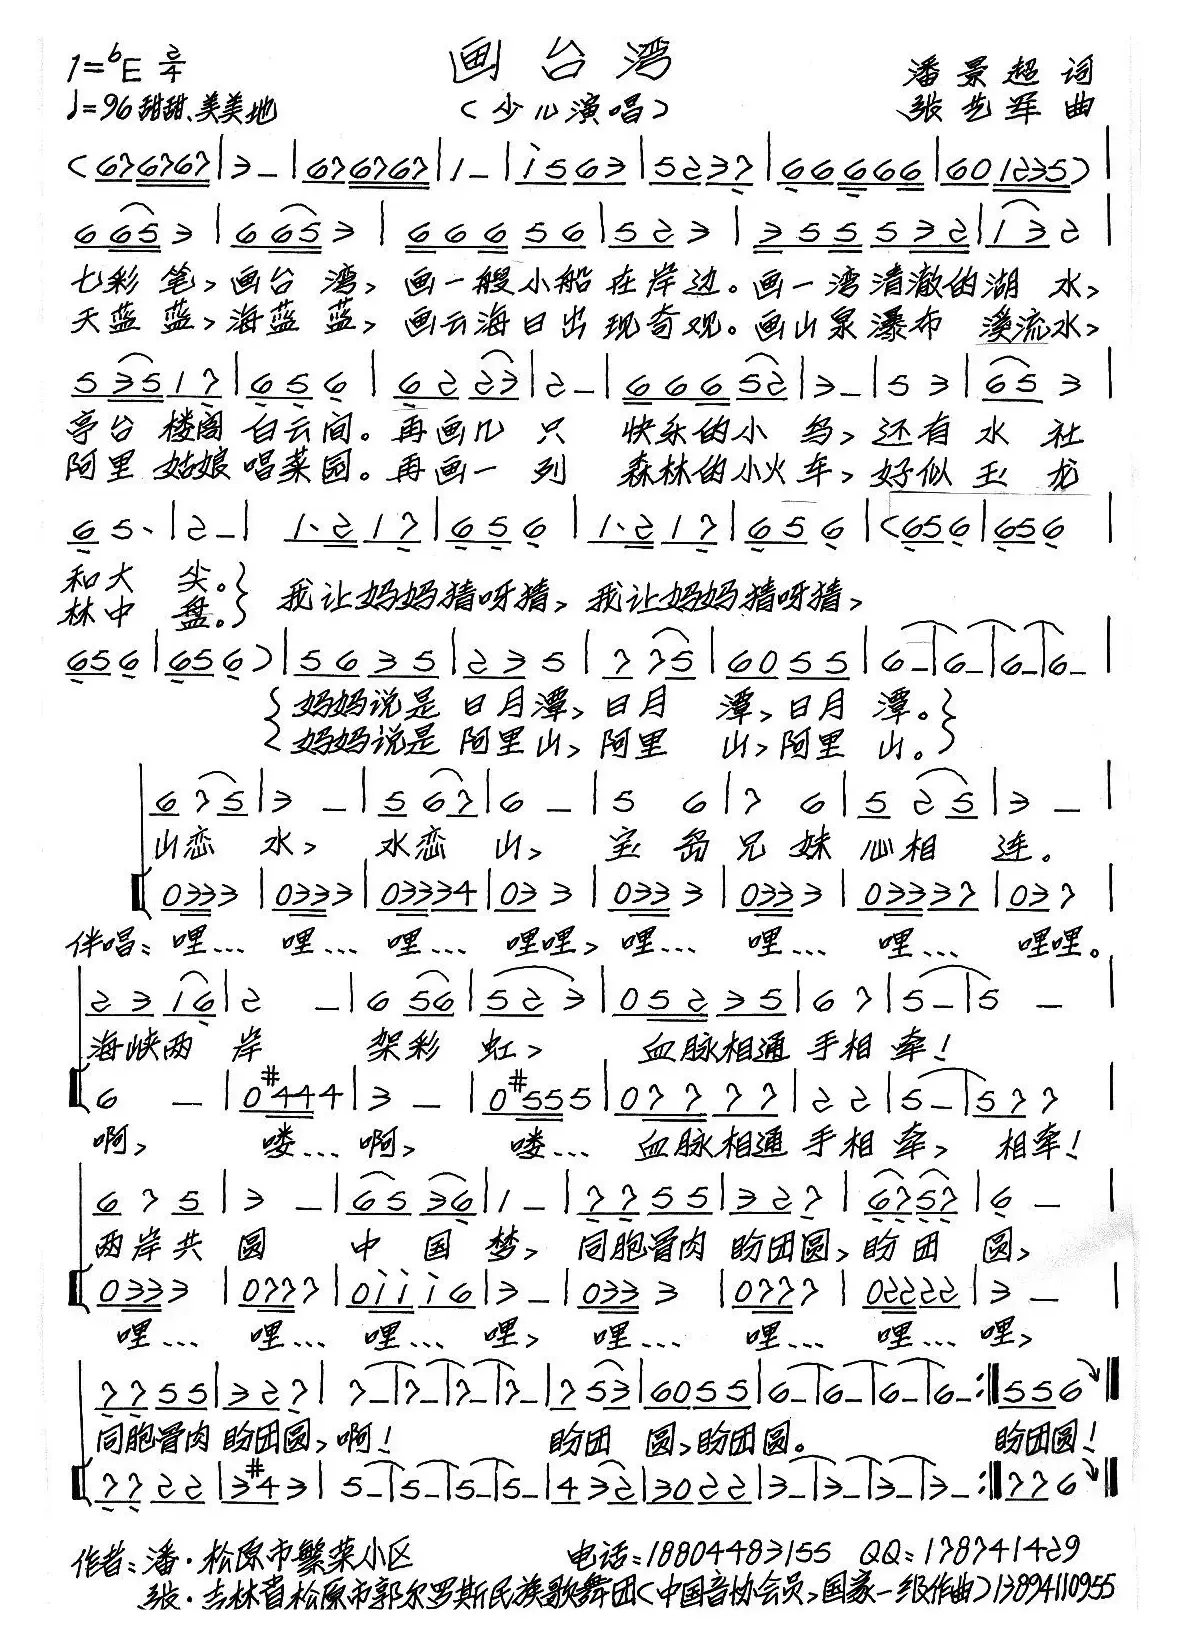 1=♭E 2/4
画台湾
潘景超 词
♩=96 甜甜、美美地
（少儿演唱）
张艺军 曲
(676767|3-|676767|1-|i563|5237|66666|601235)|
6653|6653|66656|523|355532|132|
七彩笔，画台湾，画一艘小船在岸边。画一湾清澈的湖水，
天蓝蓝，海蓝蓝，画云海日出现奇观。画山泉瀑布溪流水，
53517|656|6223|2-|66652|3-|53|653|
亭台楼阁白云间。再画几只快乐的小鸟，还有水社
阿里姑娘唱菜园。再画一列森林的小火车，好似玉龙
65·|2-|1·217|656|1·217|656|(656|656|
和大尖。} 我让妈妈猜呀猜，我让妈妈猜呀猜，
林中盘。}
656|656)|5635|235|775|6055|6-|6-|6-|6-|
{妈妈说是日月潭，日月潭，日月潭。}
{妈妈说是阿里山，阿里山，阿里山。}
675|3-|567|6-|56|76|525|3-|
山恋水，水恋山，宝岛兄妹心相连。
0333|0333|03334|033|0333|0333|03337|037|
伴唱：哩… 哩… 哩… 哩哩，哩… 哩… 哩… 哩哩。
2316|2-|656|523|05235|67|5-|5-|
海峡两岸架彩虹，血脉相通手相牵！
6-|0#444|3-|0#555|07777|22|5-|577|
啊，喽…啊，喽…血脉相通手相牵，相牵！
675|3-|6536|1-|7755|327|6757|6-|
两岸共圆中国梦，同胞骨肉盼团圆，盼团圆，
0333|0777|0iii6|3-|0333|0777|02222|3-|
哩… 哩… 哩… 哩，哩… 哩… 哩… 哩，
7755|327|7-|7-|7-|7-|753|6055|6-|6-|6-|6-:‖556‖
同胞骨肉盼团圆，啊！盼团圆，盼团圆。盼团圆！
7722|3#43|5-|5-|5-|5-|432|3022|3-|3-|3-|3-:‖776‖
作者：潘·松原市繁荣小区 电话：18804483155 QQ：178741429
张·吉林省松原市郭尔罗斯民族歌舞团（中国音协会员，国家一级作曲）13894110955